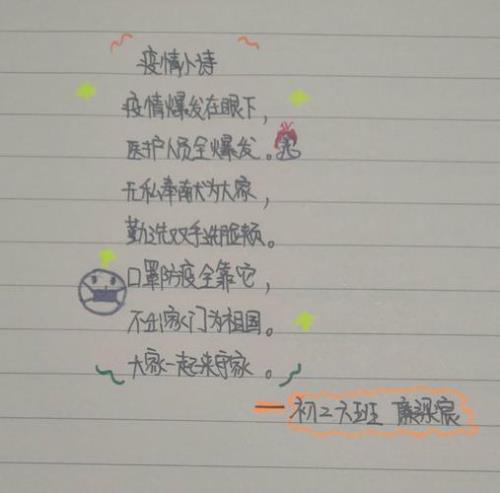 疫情小诗
疫情爆发在眼下，
医护人员全爆发。
无私奉献为大家，
勤洗双手洗脸颊。
口罩防疫全靠它，
不出家门为祖国。
大家一起来守家。
初二六班